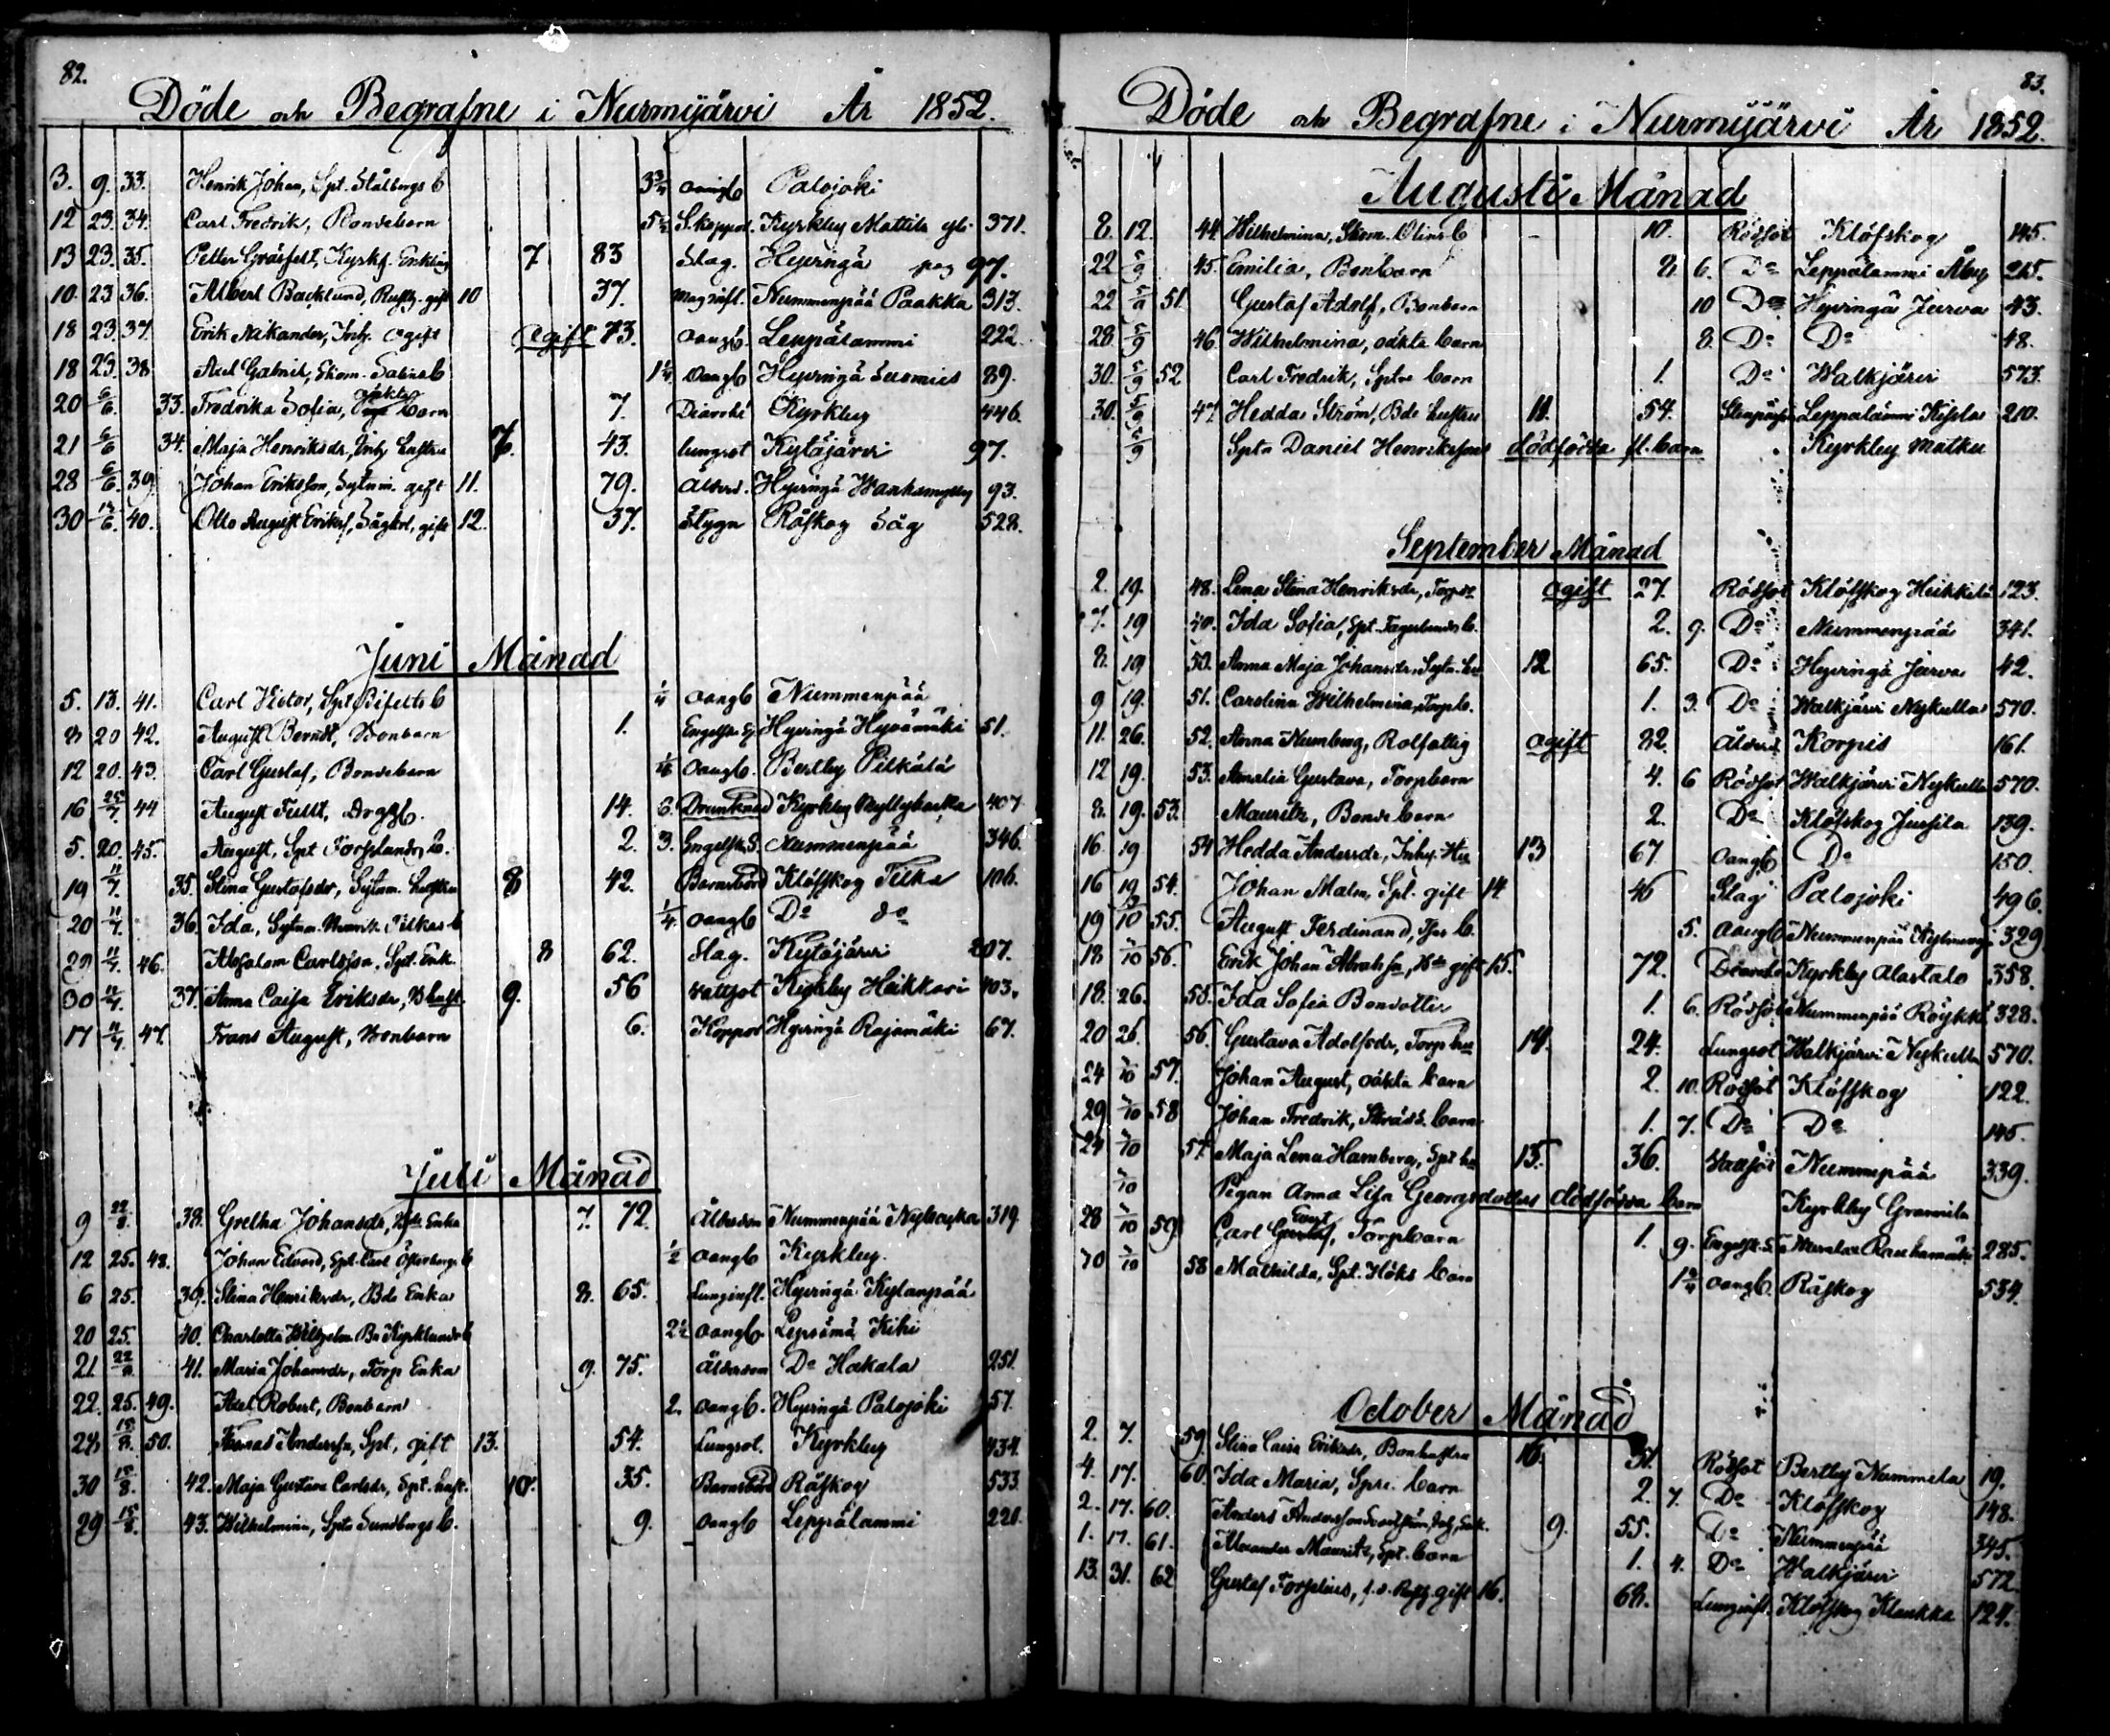 82.
Döde och Begrafne i Nurmijärvi År 1852.
3. 9. 33. Henrik Johan, Spt. Stålbergs b 3 3/4 oangb Palojoki
12 23. 34. Carl Fredrik, Bondebarn 5 1/2 S. koppor. Kyrkby Mattila 371.
13 23. 35. Petter Gräsfelt, Kyrkf. Enkling 7 83 Slag. Hyvingä pag 97.
10. 23 36. Albert Backlund, gift 10 37. Nummenpää Paakka 313.
18 23. 37. Erik Nikander, Inh. ogift ogift 73. oangb. Leppälammi 222.
18 23. 38 Axel Gabriel, Skom. b 1 1/4 oangb Hyvingä Suomies 89.
20 6/6. 33. Fredrika Sofia, oäkta barn 7. Diarrhé Kyrkby 446.
21 6/6 34. Maja Henriksdr, Inh. hustru 7. 43. lungsot Kytäjärvi 97.
28 6/6. 39 Johan Eriksson, Sytnin. gift 11. 79. Ålderd. Hyvingä 93.
30 13/6. 40. Otto August Eriksf, gift 12. 37. Stygn Råskog Såg 528.
Juni Månad
5. 13. 41. Carl Victor, Spt b 1/4 oangb Nummenpää
8 20 42. August Berndt, Bonbarn 1. Engelska Hyvingä Hyvämäki 51.
12 20. 43. Carl Gustaf, Bondebarn oangb. Bertby Pitkälä
16 25/7. 44 August 14. 6. Drunknad Kyrkby 407
5. 20. 45. August, Spt Forslunds b. 2. 3. Engelska S. Nummenpää 346.
19 11/7. 35. Stina Gustafsdr, Sytnin. hustru 8 42. Barnsbörd Klöfskog Tilka 106.
20 11/7. 36. Ida, Sytnin. b 1/4. oangb Do do
29 11/7. 46. Absalom Carlsson, Spt. Enk. 8 62. Slag. Kytäjärvi 207.
30 11/7. 37. Anna Caisa Eriksdr, 9. 56 Vattsot Kyrkby Heikkari 403.
17 11/7. 47. Frans August, Bonbarn 6. Koppor Hyvingä Rajamäki 67.
Juli Månad
9 22/8. 38. Gretha Johansdr, Enka 7. 72. Ålderdom Nummenpää 319.
12 25. 48. Johan Edvard, Spt. Carl Österbergs b 1/2 oangb Kyrkby.
6 25. 39. Stina Henriksdr, Bde Enka 8. 65. Lunginfl. Hyvingä Kytänpää
20 25. 40. Charlotta Wilhelm. b 2 1/2 oangb Lepsämä Kihi
21 22/8 41. Maria Johansdr, Torp Enka 9. 75. Ålderdom Do Hakala 251.
22. 25. 49. Axel Robert, Bonbarn 2. oangb. Hyvingä Palojoki 57.
28 15/8. 50. Andersson, Spt, gift 13. 54. Lungsot. Kyrkby 434.
30 15/8. 42. Maja Gustava Carlsdr, Spt. hust. 10. 35. Barnsbörd Råskog 533
29 15/8. 43. Wilhelmina, Spts Sundbergs b. 9. oangb Leppälammi 220.
83.
Döde och Begrafne i Nurmijärvi År 1852.
Augusti Månad
8. 12. 44. Wilhelmina, Skom. Olins b 10. Rödsot Klöfskog 145.
22 5/9 45. Emilia, Bonbarn 2. 6. Do Leppälammi Åby 215.
22 5/9 51. Gustaf Adolf, Bonbarn 10 Do Hyvingä Jurva 43.
28. 5/9 46. Wilhelmina, oäkta barn 8. Do Do 48.
30. 5/9 52 Carl Fredrik, Spts barn 1. Do Walkjärvi 573.
30. 5/9 47. Hedda Ström, Bde hustru 11. 54. Leppälammi 210.
5/9 Spts Daniel Henrikssons dödfödda fl. barn Kyrkby
September Månad
2. 19. 48. Lena Stina Henriksdr, ogift 27. Rödsot Klöfskog Heikkilä 123.
7. 19 49. Ida Sofia, Spt. Fagerlunds b. 2. 9. Do Nummenpää 341.
8. 19 50. Anna Maja Johansdr. 12 65. Do Hyvingä Jurva 42.
9 19. 51. Carolina Wilhelmina, Torpb. 1. 3. Do Walkjärvi Nykulla 570.
11. 26. 52. Anna Numberg, Rotfattig ogift 82 Ålderd Korpis 161.
12 19. 53. Amalia Gustava, Torpbarn 4. 6 Rödsot Walkjärvi Nykulla 570.
8. 19. 53. Mauritz, Bondebarn 2. Do Klöfskog Jussila 139.
16. 19 54 Hedda Andersdr, Inhy. 13 67 oangb Do 150.
16 19 54. Johan Malm, Spt. gift 14. 46 Slag Palojoki 496.
19 3/10 55. August Ferdinand, b. 5. oangb Nummenpää 329.
18 3/10 56. Erik Johan Abrahsn, gift 15. 72. Diarrhé Kyrkby Alastalo 358.
18. 26. 55. Ida Sofia Bondotter 1. 6. Rödsot Nummenpää Röykkä 328.
20 26. 56. Gustava Adolfsdr, Torp hu 14. 24. Lungsot Walkjärvi Nykulla 570.
24 3/10 57. Johan August, oäkta barn 2. 10. Rödsot Klöfskog 122.
29 3/10 58 Johan Fredrik, Skrädd. barn 1. 7. Do Do 145.
24 3/10 57. Maja Lena Hamberg, Spt hu 15. 36. Vattsot Nummenpää 339.
3/10 Pigan Anna Lisa Georgsdotters dödfödda barn Kyrkby
28 3/10 59. Carl Ernst, Torpbarn 1. 9. Engelsk. S. Rauhamäki 285.
30 3/10 58 Mathilda, Spt. Höks barn 1 3/4 oangb. Råskog 534.
October Månad
2. 7. 59. Stina Caisa Eriksdr, Bonhustru 16. 31. Rödsot Bertby Nummela 19.
4. 17. 60. Ida Maria, Spts. barn 2. 7. Do Klöfskog 148.
2. 17. 60. Anders Andersson 9. 55. Do Nummenpää 345.
1. 17. 61. Alexander Mauritz, Spt. barn 1. 4. Do Walkjärvi 572.
13. 31. 62 Gustaf Forselius, gift 16. 68. Lunginfl. Klöfskog Klaukka 124.